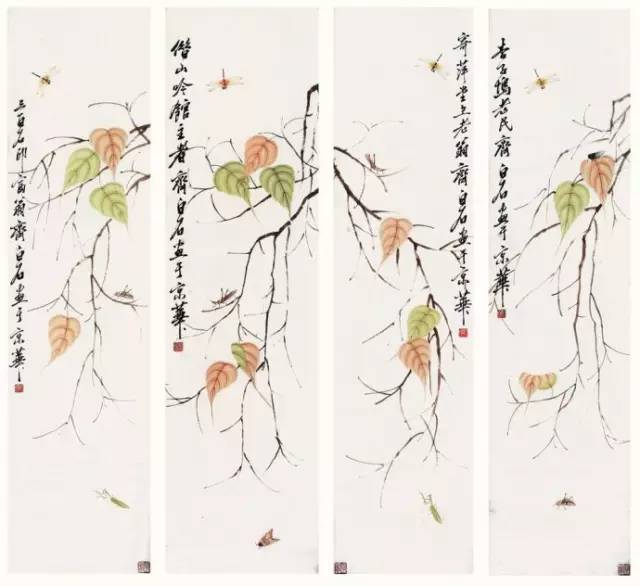 杏子塢老民齊白石畫于京華
寄萍堂上老翁齊白石畫于京華
借山吟館主者齊白石畫于京華
三百石印富翁齊白石畫于京華